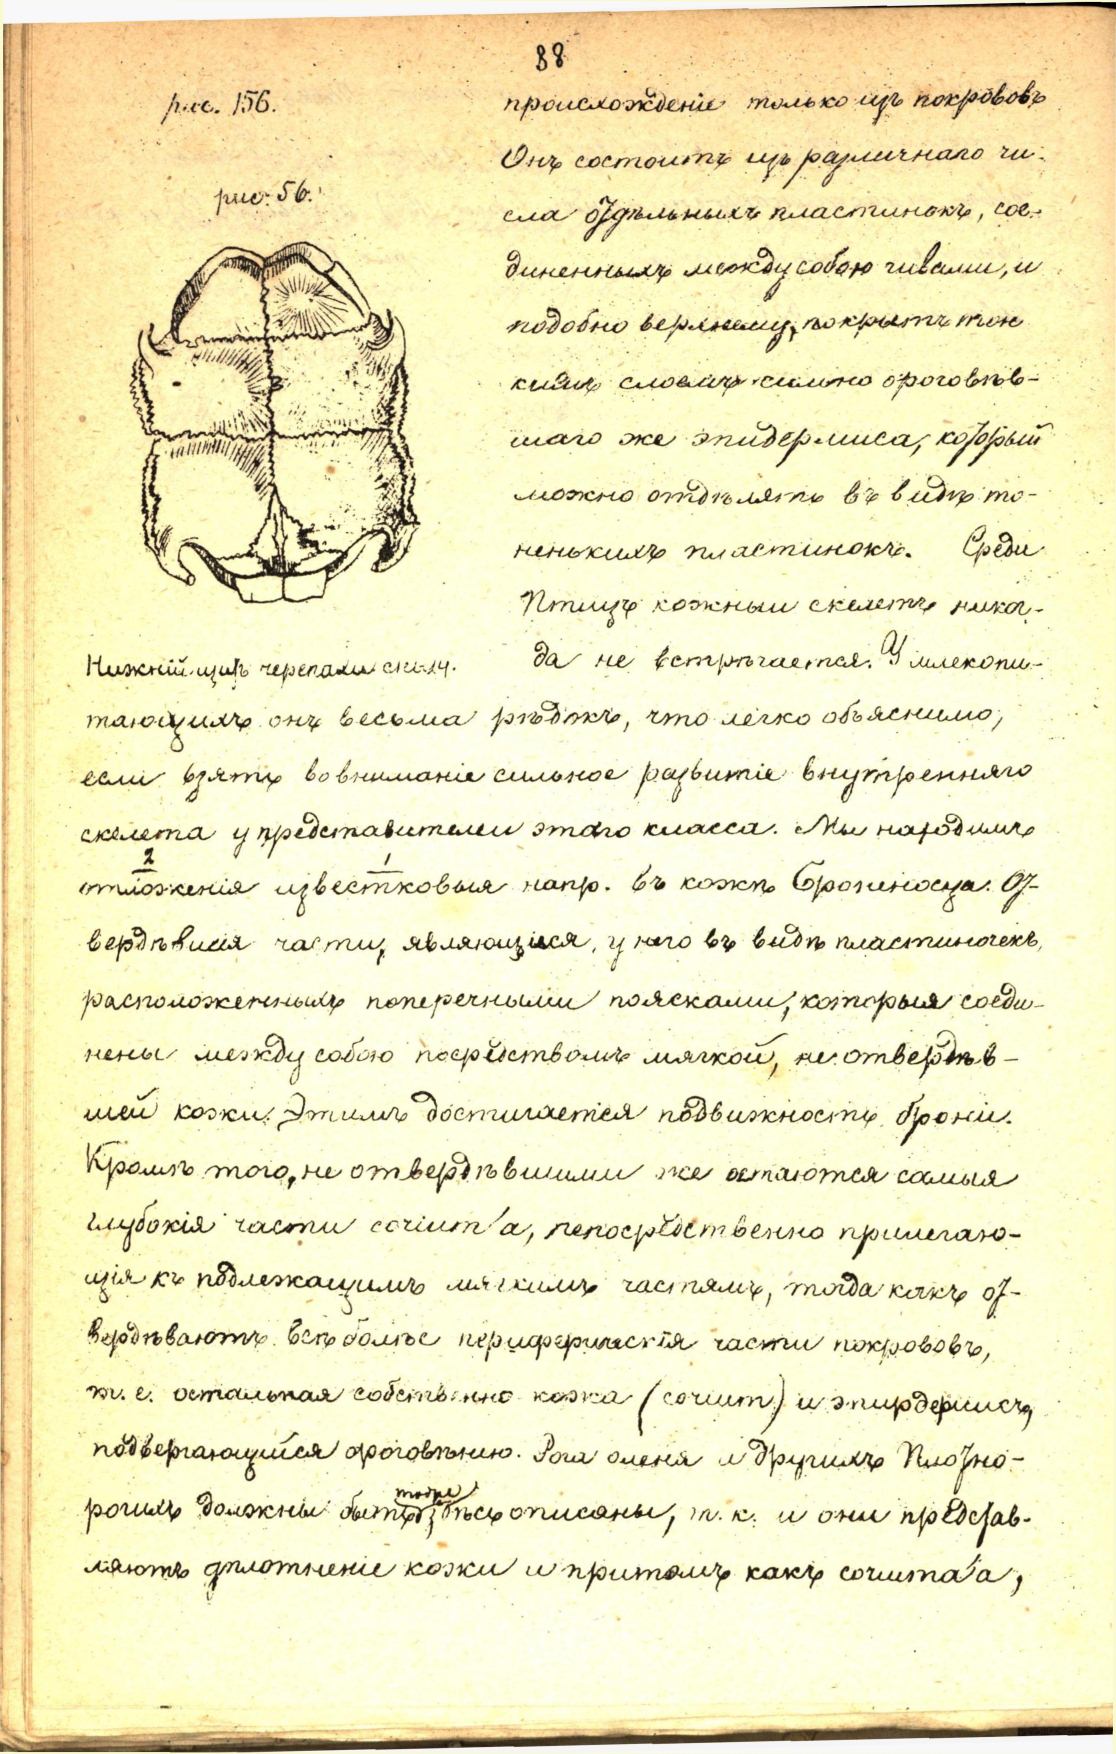 88
рис. 156.
рис. 56.
происхожденіе только изъ покрововъ
Онъ состоитъ изъ различнаго чи-
сла отдѣльныхъ пластинокъ, сое-
диненныхъ между собою швами, и
подобно верхнему, покрытъ тон
кимъ слоемъ сильно ороговѣв-
шаго же эпидермиса, который
можно отдѣлять въ видѣ то-
ненькихъ пластинокъ. Среди
Птицъ кожный скелетъ никог-
да не встрѣчается. У млекопи-
Нижній щитъ черепахи
тающихъ онъ весьма рѣдокъ, что легко объяснимо,
если взять во вниманіе сильное развитіе внутренняго
скелета у представителей этого класса. Мы находимъ
2 1
отложенія известковыя напр. въ кожѣ Броненосца. От-
вердѣвшія части, являющіяся, у него въ видѣ пластиночекъ,
расположенныхъ поперечными поясками, которыя соеди-
нены между собою посредствомъ мягкой, не отвердѣв-
шей кожи. Этимъ достигается подвижность брони.
Кромѣ того, не отвердѣвшими же остаются самыя
глубокія части corium'а, непосредственно прилегаю-
щія къ подлежащимъ мягкимъ частямъ, тогда какъ от-
вердѣваютъ всѣ болѣе периферическія части покрововъ,
т. е. остальная собственно кожа (corium) и эпирдермисъ,
подвергающійся ороговѣнію. Рога оленя и другихъ Плотно-
рогихъ должны быть здѣсь описаны, т. к. и они представ-
ляютъ уплотненіе кожи и притомъ какъ coriuma'а,